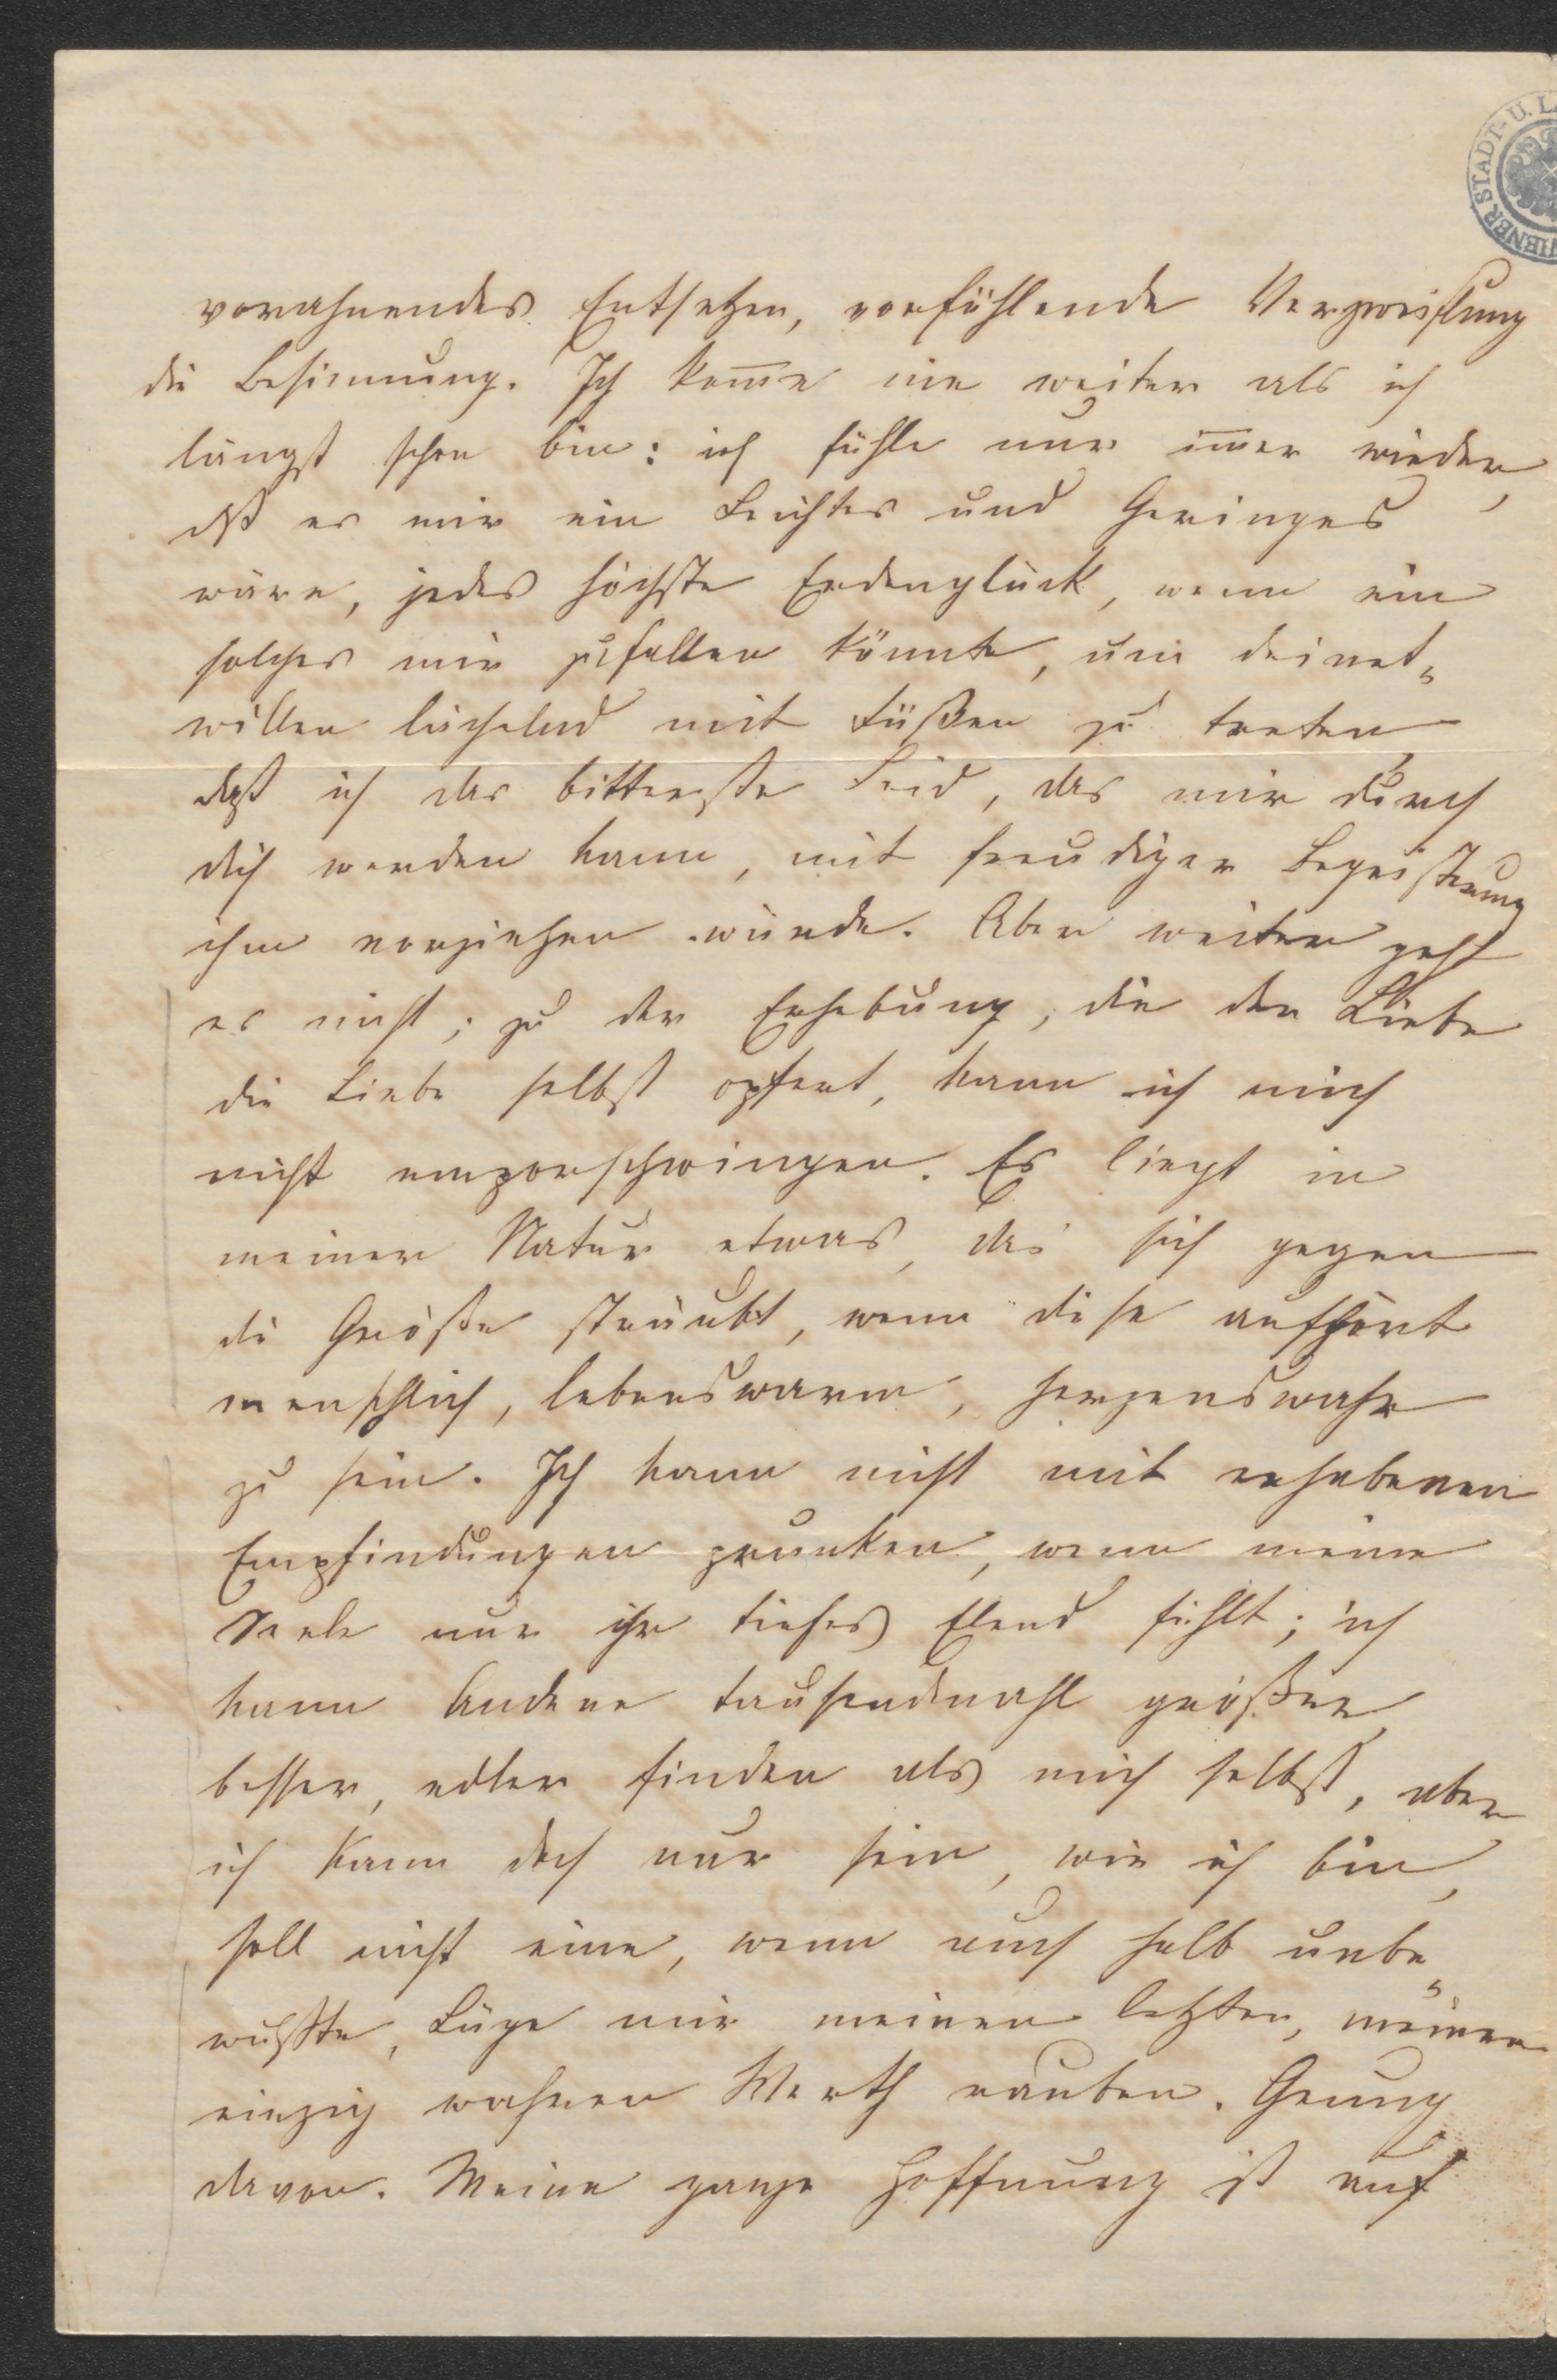 WIENER STADT- U. L
vorahnendes Entsetzen, vorfühlende Verzweiflung
die Besinnung. Ich kom̅e nie weiter als ich
längst schon bin: ich fühle nur im̅er wieder,
dß es mir ein Leichtes und Geringes
wäre, jedes höchste Erdenglück, wenn ein
solches mir zufallen könnte, um deinet„
willen lächelnd mit Füßen zu treten,
daß ich das bitterste Leid, das mir durch
dich werden kann, mit freudiger Begeisterung
ihm vorziehen würde. Aber weiter geht
es nicht; zu der Erhebung, die der Liebe
die Liebe selbst opfert, kann ich mich
nicht emporschwingen. Es liegt in
meiner Natur etwas, das sich gegen
die Größe sträubt, wenn diese aufhört
menschlich, lebenswarm, herzenswahr
zu sein. Ich kann nicht mit erhabenen
Empfindungen prunken, wenn meine
Seele nur ihr tiefes Elend fühlt; ich
kann Andere tausendmahl größer,
besser, edler finden als mich selbst, aber
ich kann doch nur sein, wie ich bin,
soll nicht eine, wenn auch halb unbe„
wußte, Lüge mir meinen letzten, meinen
einzig wahren Werth rauben. Genug
davon. Meine ganze Hoffnung ist auf